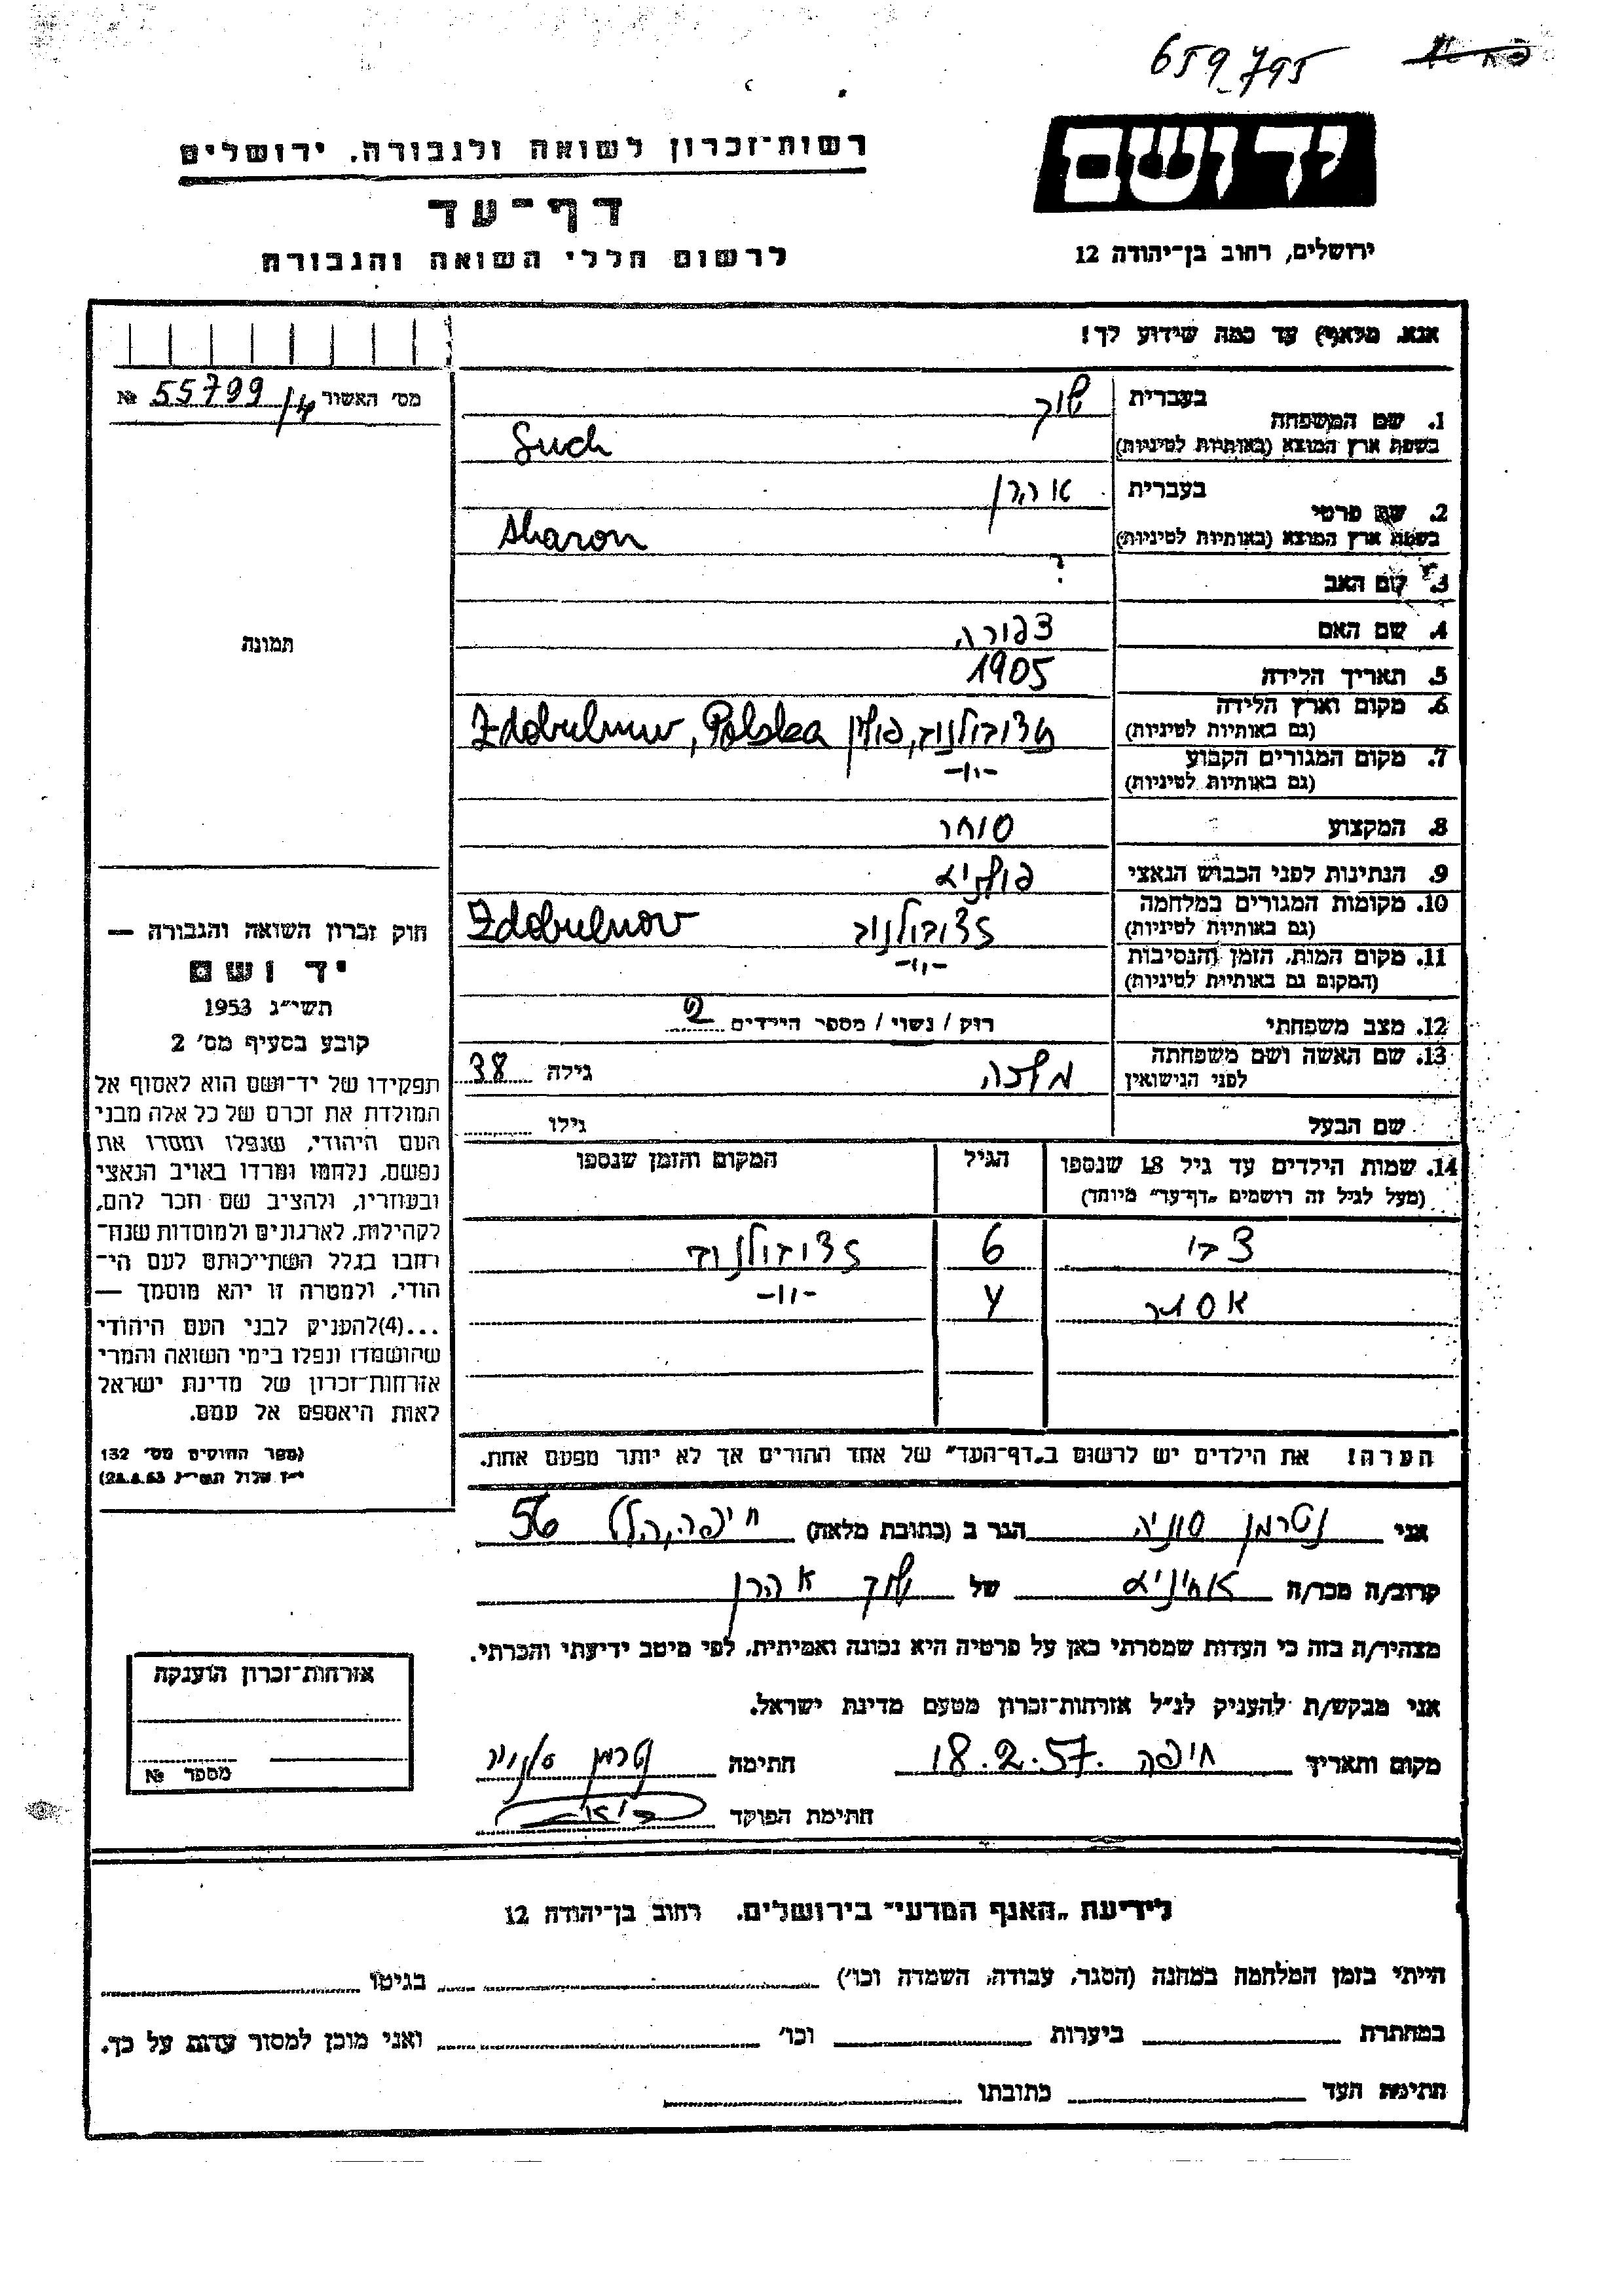 659_795
יד ושם
רשות־זכרון לשואה ולגבורה, ירושלים
דף־עד
לרשום חללי השואה והגבורה
ירושלים, רחוב בן־יהודה 12
אנא, מלא(י) עד כמה שידוע לך!
מס׳ האשור 55799/4 №
1. שם המשפחה
בעברית שוך
בשפת ארץ המוצא (באותיות לטיניות) Such
2. שם פרטי
בעברית אהרן
בשפת ארץ המוצא (באותיות לטיניות) Aharon
3. שם האב ?
4. שם האם צפורה
5. תאריך הלידה 1905
6. מקום וארץ הלידה
(גם באותיות לטיניות) פולין Zdobulnow, Polska
7. מקום המגורים הקבוע -״-
(גם באותיות לטיניות)
8. המקצוע סוחר
9. הנתינות לפני הכבוש הנאצי
10. מקומות המגורים במלחמה
(גם באותיות לטיניות) זדובולנוב Zdobulnow
11. מקום המות, הזמן והנסיבות -״-
(המקום גם באותיות לטיניות)
12. מצב משפחתי רוק / נשוי / מספר הילדים 2
13. שם האשה ושם משפחתה
לפני הנישואין מלכה גילה 38
שם הבעל גילו
14. שמות הילדים עד גיל 18 שנספו
(מעל לגיל זה רושמים „דף־עד״ מיוחד)
הגיל
המקום והזמן שנספו
צבי 6 זדובולנוב
אסתר 4 -״-
הערה! את הילדים יש לרשום ב„דף־העד״ של אחד ההורים אך לא יותר מפעם אחת.
תמונה
חוק זכרון השואה והגבורה —
יד ושם
תשי״ג 1953
קובע בסעיף מס׳ 2
תפקידו של יד־ושם הוא לאסוף אל
המולדת את זכרם של כל אלה מבני
העם היהודי, שנפלו ומסרו את
נפשם, נלחמו ומרדו באויב הנאצי
ובעוזריו, ולהציב שם וזכר להם,
לקהילות, לארגונים ולמוסדות שנח־
רבו בגלל השתייכותם לעם הי־
הודי, ולמטרה זו יהא מוסמך —
...(4)להעניק לבני העם היהודי
שהושמדו ונפלו בימי השואה והמרי
אזרחות־זכרון של מדינת ישראל
לאות היאספם אל עמם.
(ספר החוקים מס׳ 132
אני נטרמן סוניה הגר ב (כתובת מלאה) חיפה, הלל 56
קרוב/ה מכר/ה של שוך אהרן
מצהיר/ה בזה כי העדות שמסרתי כאן על פרטיה היא נכונה ואמיתית, לפי מיטב ידיעתי והכרתי.
אני מבקש/ת להעניק לנ״ל אזרחות־זכרון מטעם מדינת ישראל.
מקום ותאריך חיפה 18.2.57 חתימה נטרמן סוניה
חתימת הפוקד
אזרחות־זכרון הוענקה
מספר №
לידיעת „האגף המדעי״ בירושלים, רחוב בן־יהודה 12
הייתי בזמן המלחמה במחנה (הסגר, עבודה, השמדה וכו׳) בגיטו
במחתרת ביערות וכו׳ ואני מוכן למסור עדות על כך.
חתימת העד כתובתו